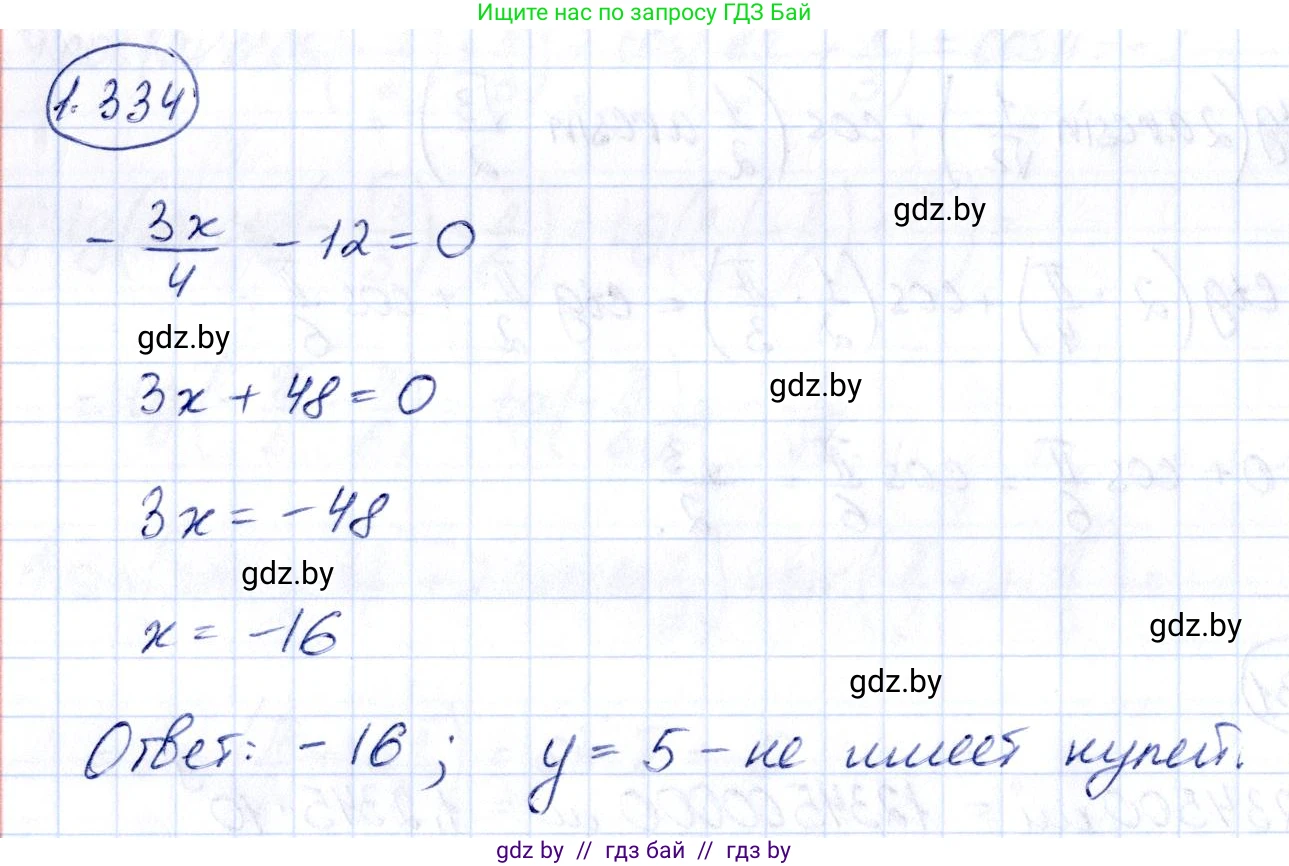 Ищите нас по запросу ГДЗ Бай
1.334
- 3x/4 - 12 = 0
gdz.by
gdz.by
3x + 48 = 0
gdz.by
3x = -48
gdz.by
x = -16
gdz.by
gdz.by
Ответ: -16; y = 5 - не имеет нулей.
gdz by // гдз бай // гдз by